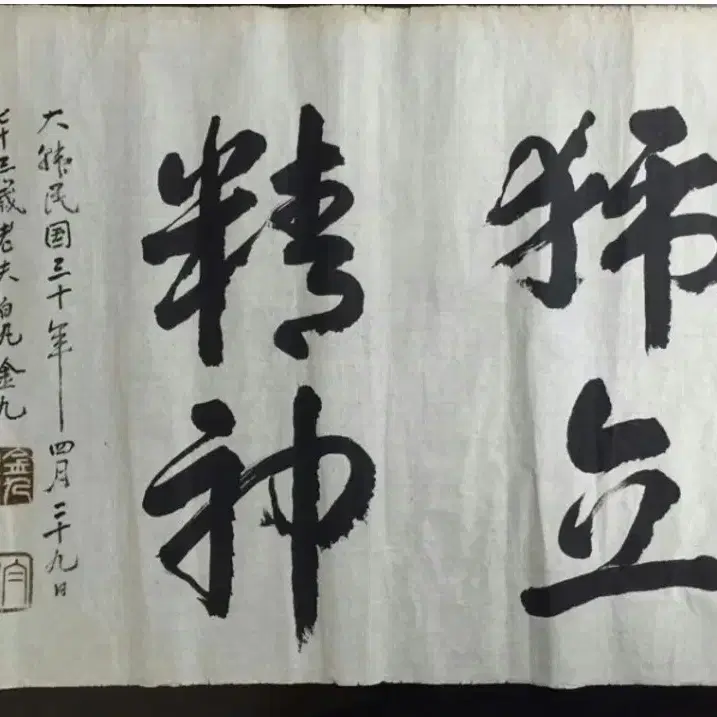 獨立
精神
大韓民国三十年四月二十九日
七十三歲老夫白凡金九
金九